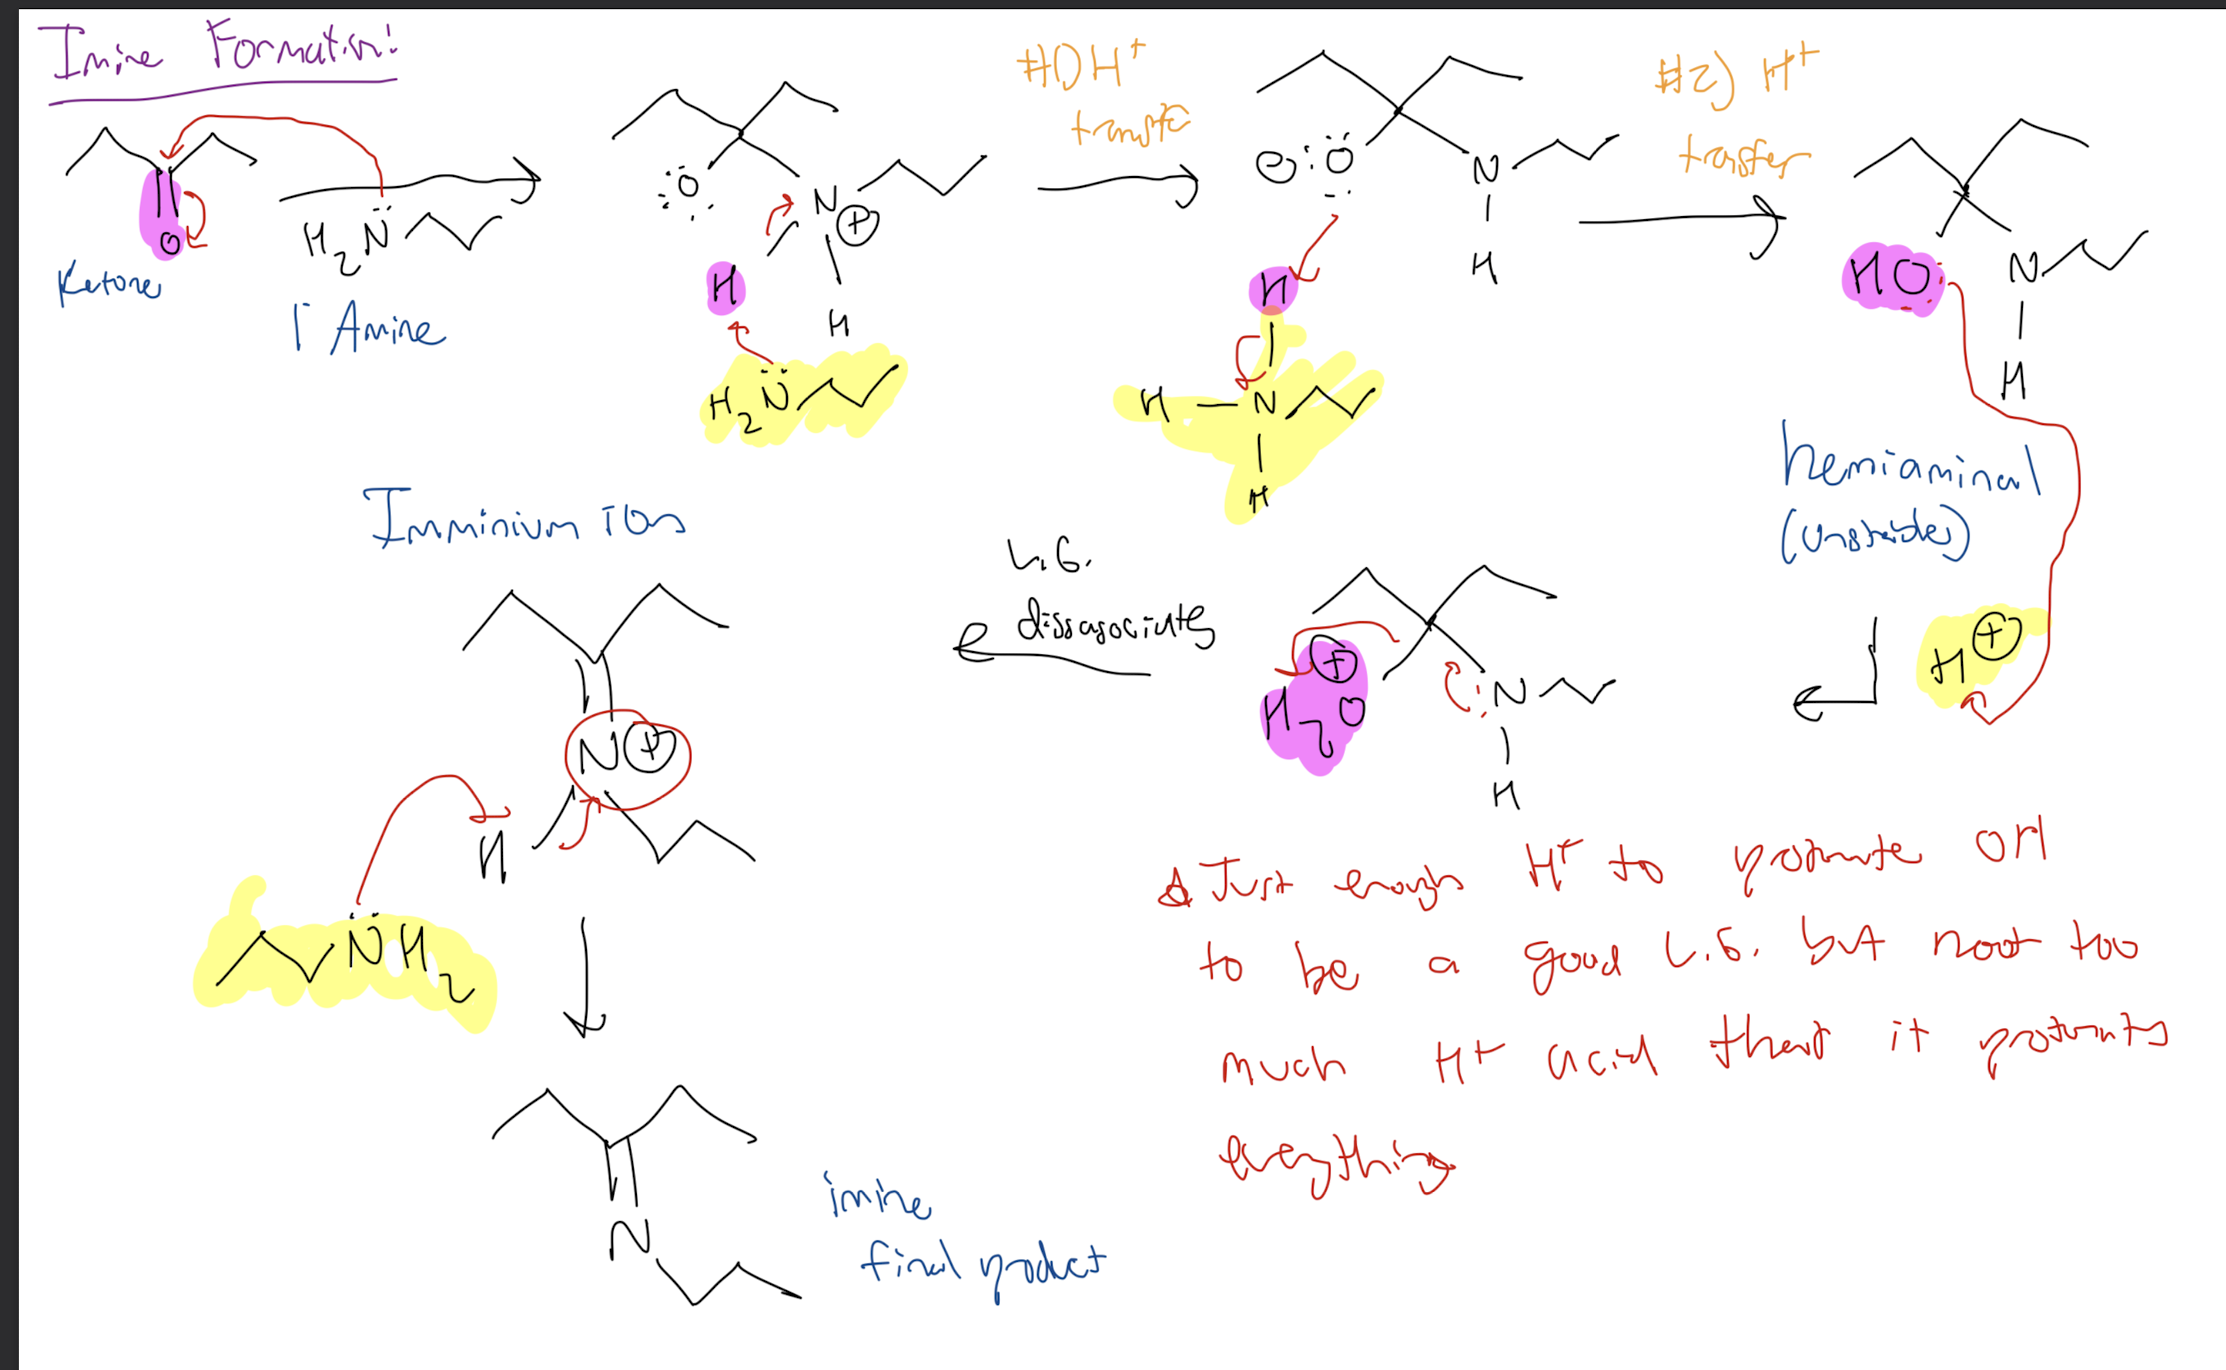 Imine Formation!
Ketone
O
H2N
1° Amine
O
N
+
H
H
H2N
#1) H+
transfer
⊖:O
N
H
H
H – N
H
#2) H+
transfer
HO
N
H
hemiaminal
(unstable)
H+
H2O
+
N
H
L.G.
dissasociates
Imminium ion
N+
H
NH2
N
imine
final product
Just enough H+ to protonate OH
to be a good L.G. but noot too
much H+ acid that it protonts
everything